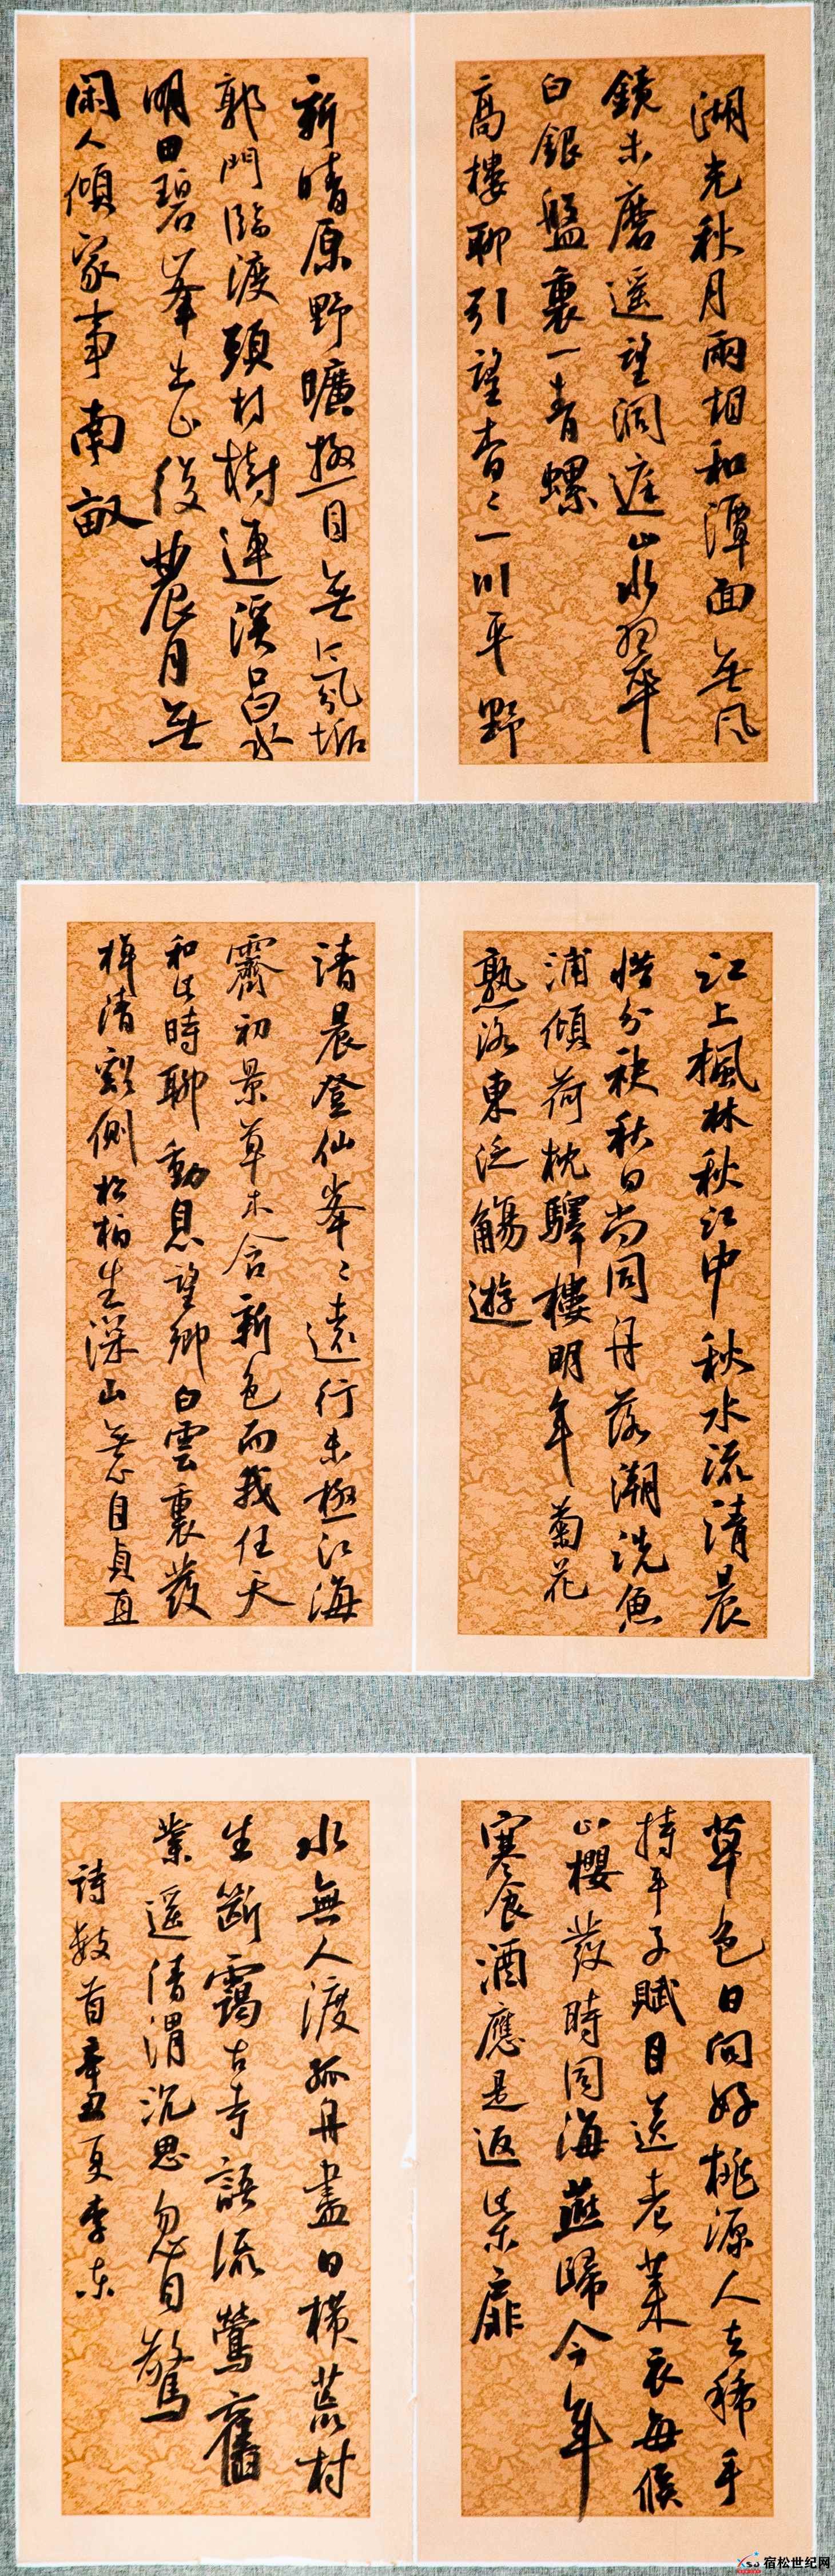 湖光秋月兩相和潭面無風
鏡未磨遥望洞庭山水翠
白銀盤裏一青螺
高樓聊引望杳〻一川平野
新晴原野曠極目無氛垢
郭門臨渡頭村樹連溪口白水
明田碧峯出山後農月無
閑人傾家事南畝
江上楓林秋江中秋水流清晨
惜分袂秋日尚同舟落潮洗魚
浦傾荷枕驛樓明年菊花
熟洛東泛觴遊
清晨登仙峯〻遠行未極江海
霽初景草木含新色而我任天
和此時聊動息望鄉白雲裏發
棹清谿側松柏生深山無心自貞直
草色日向好桃源人去稀手
持平子賦目送老萊衣每候
山櫻發時同海燕歸今年
寒食酒應是返柴扉
水無人渡孤舟盡日横荒村
生斷靄古寺語流鶯舊
業遥清渭沉思忽自驚
詩數首辛丑夏李東
宿松世纪网